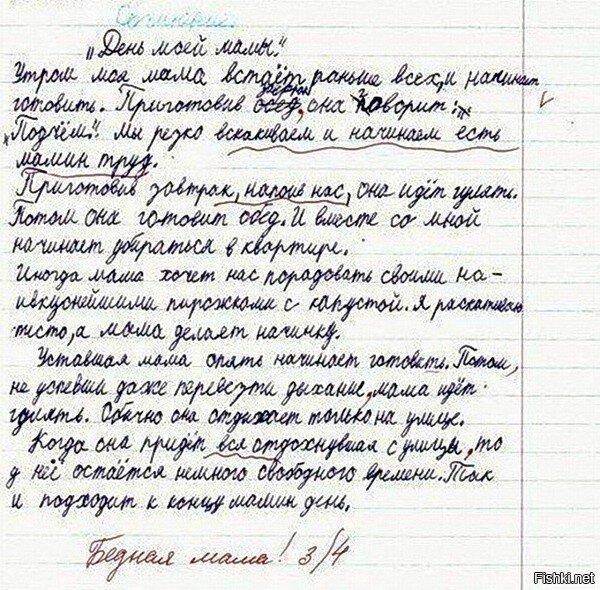 Сочинение.
„День моей мамы."
Утром моя мама встаёт раньше всех, и начинает
готовить. Приготовив завтрак, она говорит:
„Подъём". Мы резко вскакиваем и начинаем есть
мамин труд.
Приготовив завтрак, напоив нас, она идёт гулять.
Потом она готовит обед. И вместе со мной
начинает убираться в квартире.
Иногда мама хочет нас порадовать своими на-
ивкуснейшими пирожками с капустой. Я раскатываю
тесто, а мама делает начинку.
Уставшая мама опять начинает готовить. Потом,
не успевши даже перевезти дыхание, мама идёт
гулять. Обычно она отдыхает только на улице.
Когда она придёт вся отдохнувшая с улицы, то
у неё остаётся немного свободного времени. Так
и подходит к концу мамин день.
Бедная мама! 3/4
Fishki.net